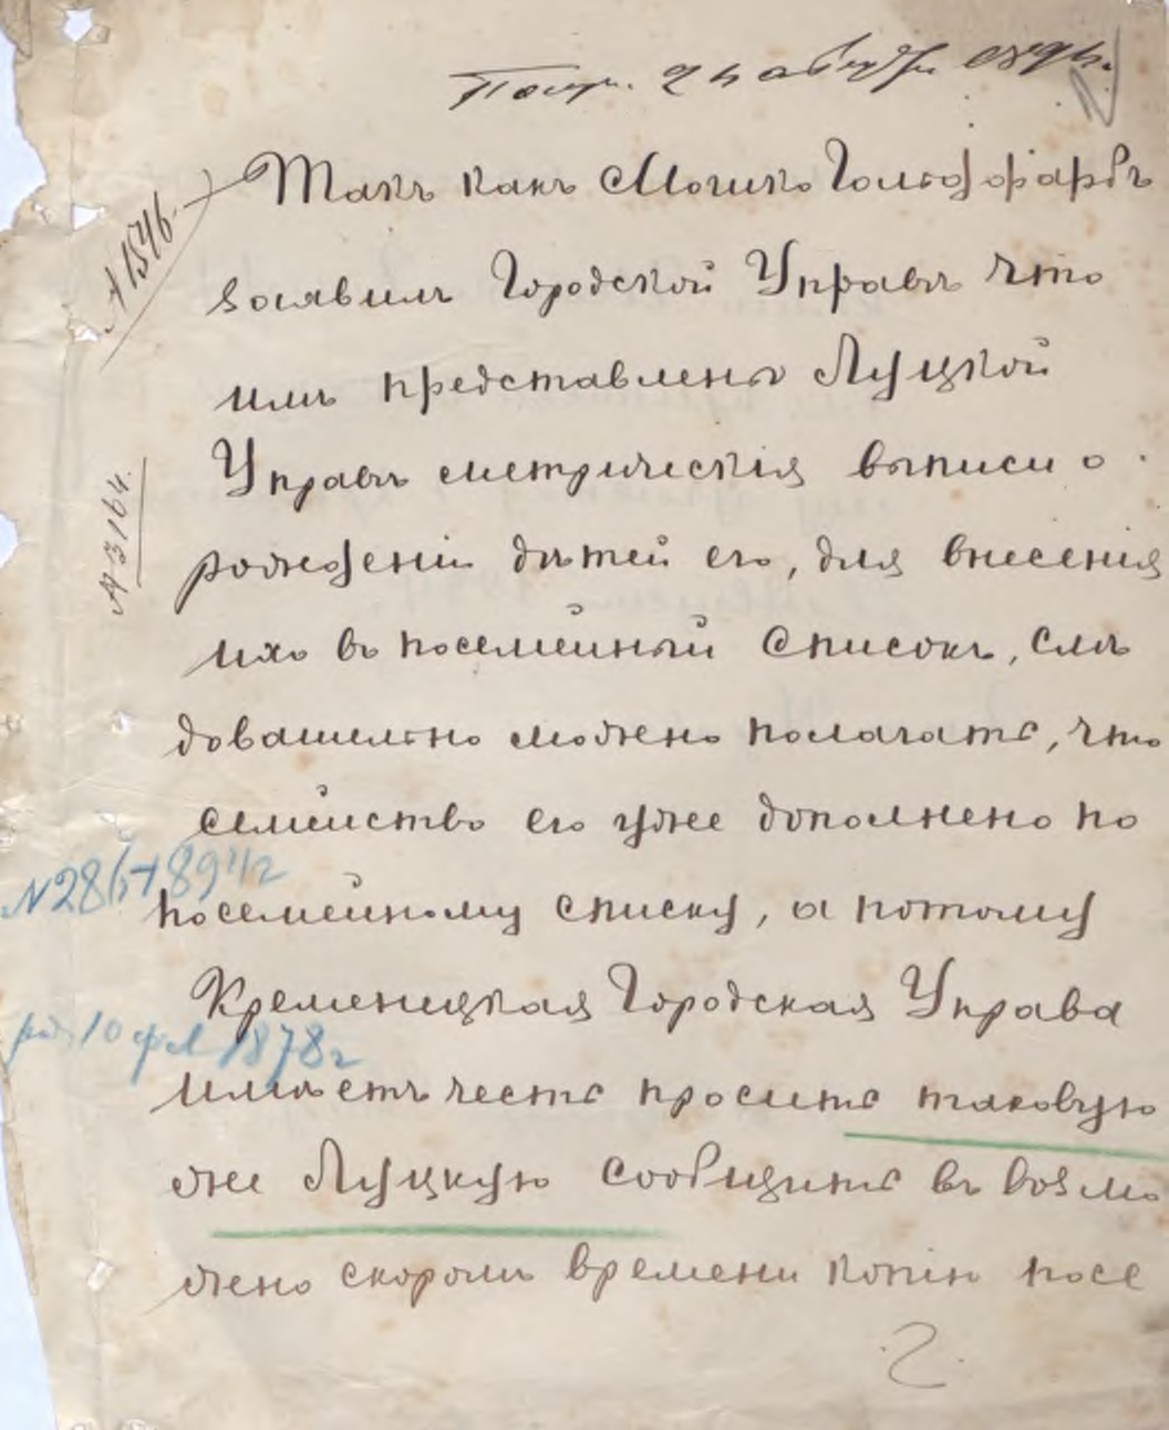 Пол. 24 августа 1894 г.
№ 1546.
Такъ какъ Мошко Гольдфарбъ
заявилъ Городской Управѣ что
имъ представлены Луцкой
Управѣ метрическія выписи о
№ 3164.
рожденіи дѣтей его, для внесенія
ихъ въ посемейный списокъ, слѣ
довательно можно полагать, что
семейство его уже дополнено по
№ 286 1894 г
посемейному списку, а потому
Кременецкая Городская Управа
10 фев 1878 г
имѣетъ честь просить таковую
же Луцкую сообщить въ возмо
жно скоромъ времени копію посе